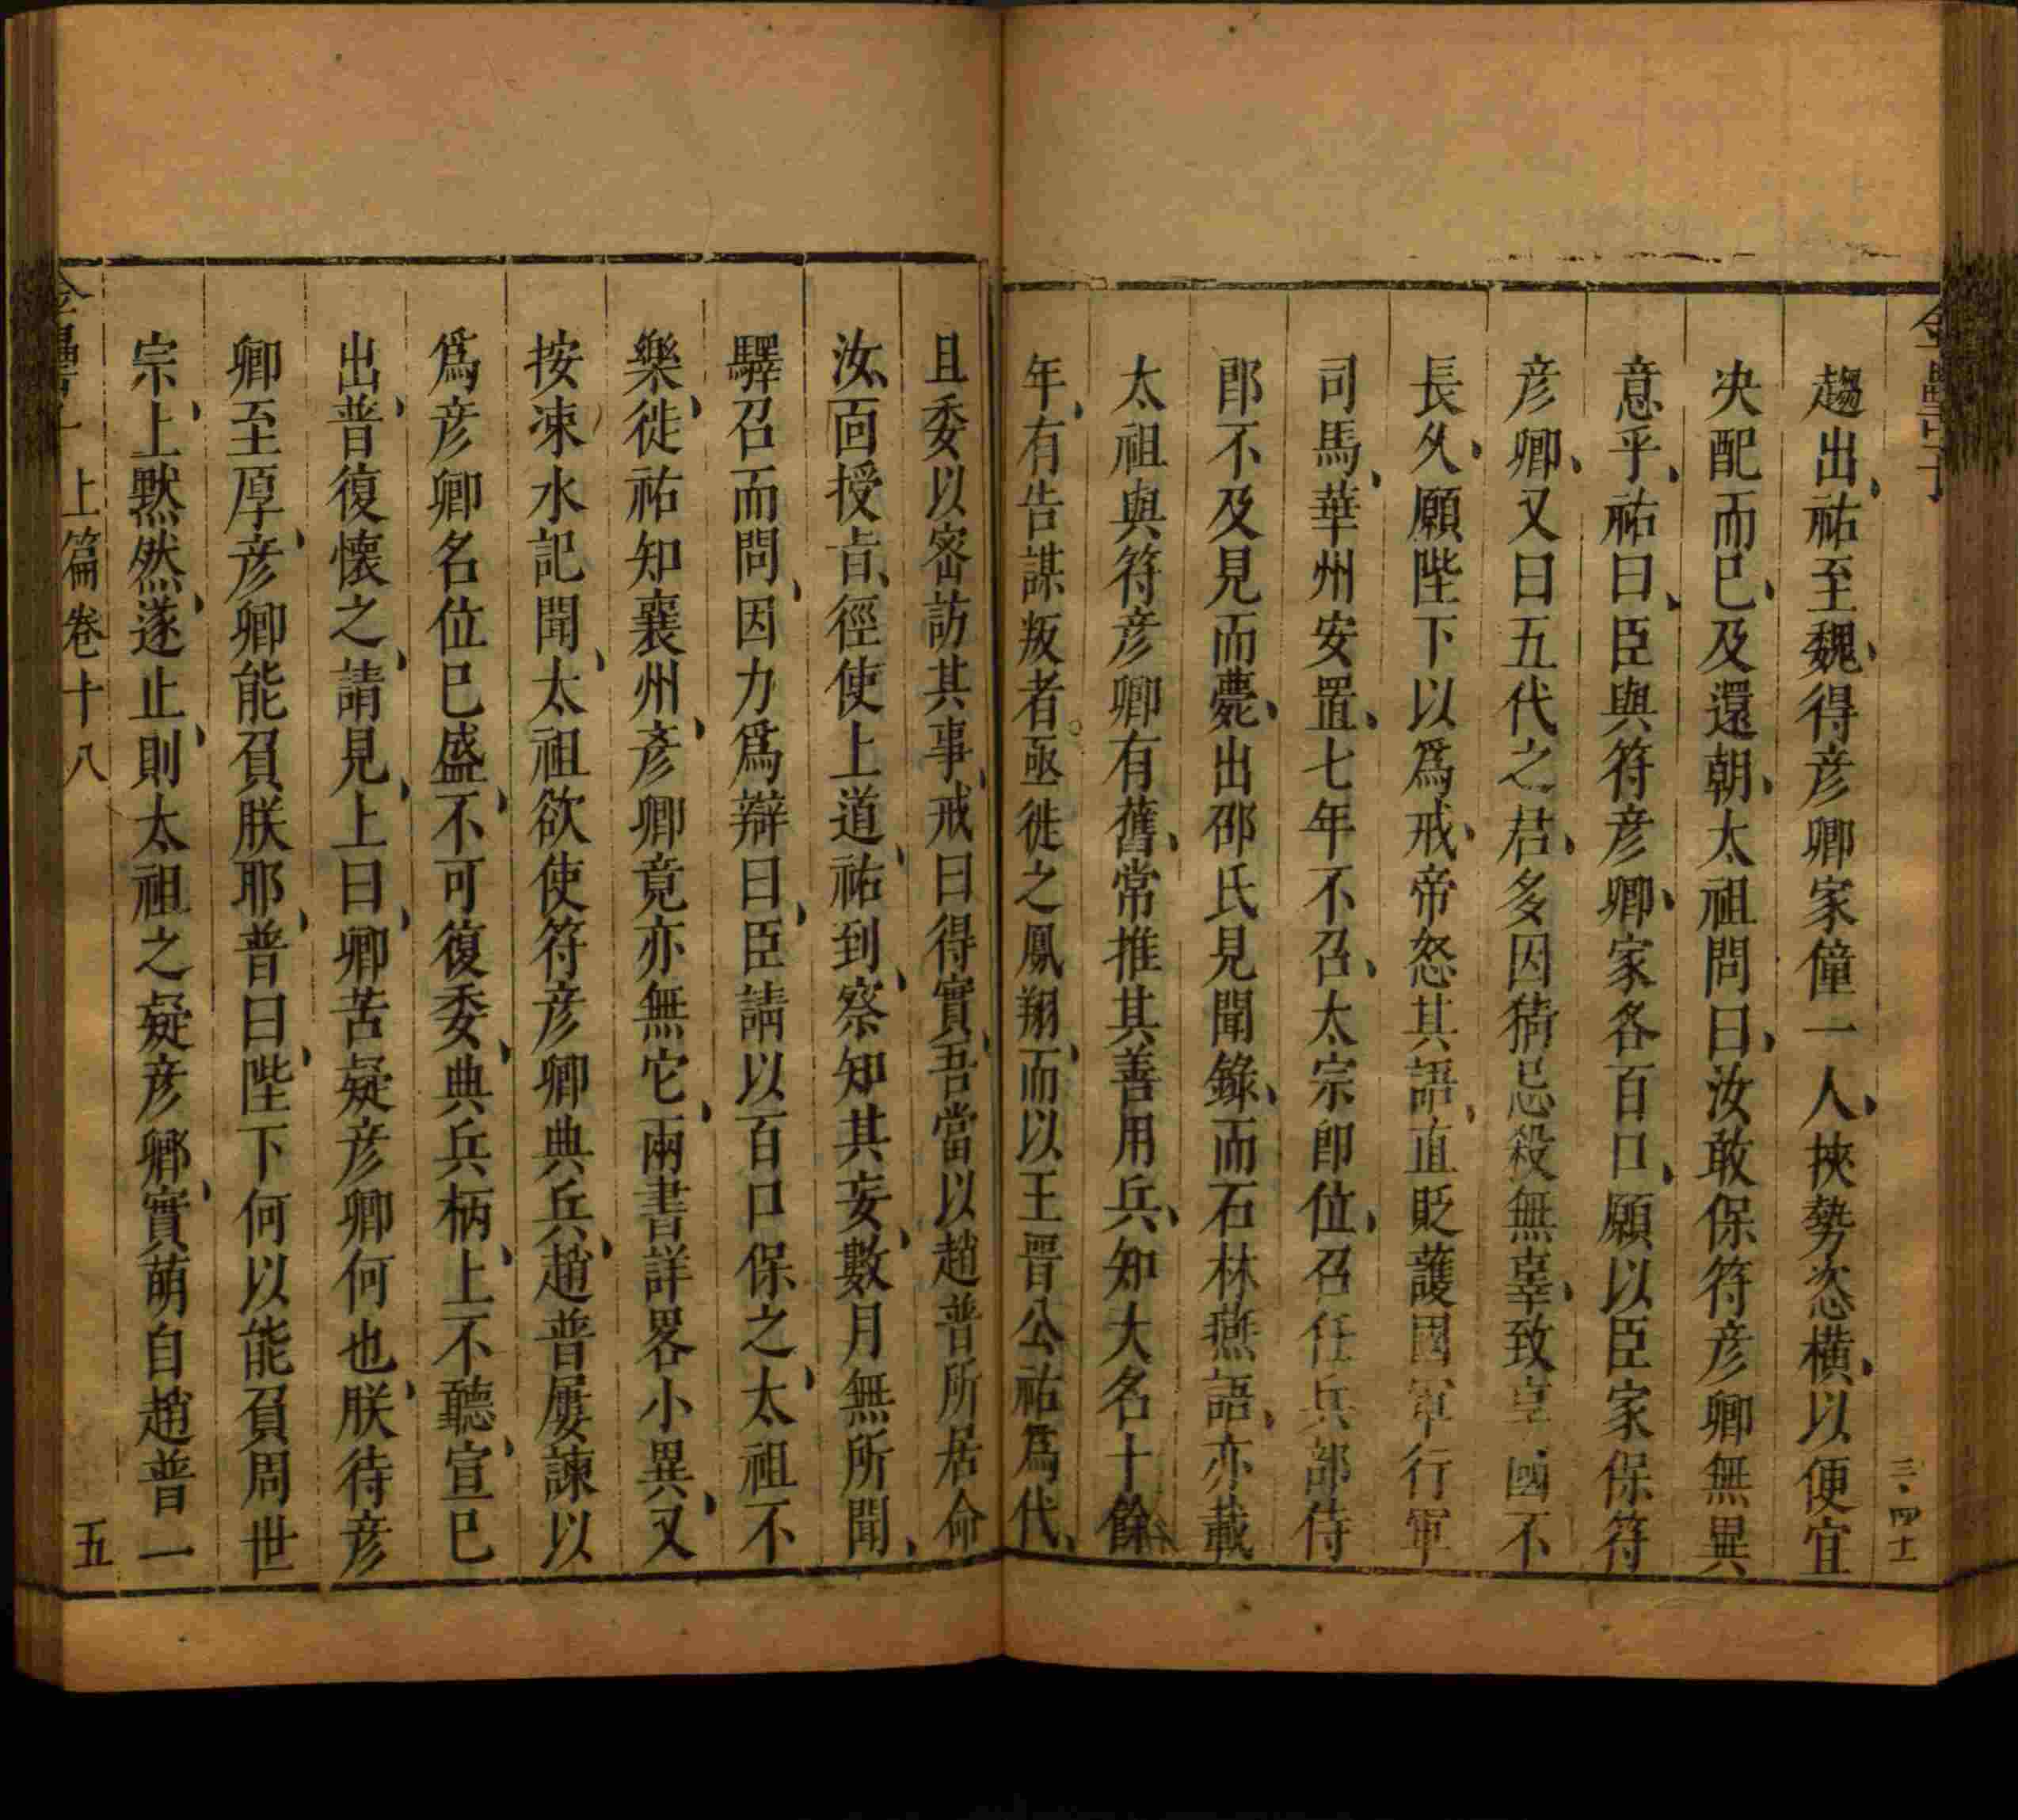 趨出祐至魏得彦卿家僮一人挾勢恣橫以便宜
决配而已及還朝太祖問曰汝敢保符彦卿無異
意乎祐曰臣與符彦卿家各百口願以臣家保符
彦卿又曰五代之君多因猜忌殺無辜致享國不
長久願陛下以爲戒帝怒其語直貶護國軍行軍
司馬華州安置七年不召太宗卽位召任兵部侍
郎不及見而薨出邵氏見聞錄而石林燕語亦載
太祖與符彦卿有舊常推其善用兵知大名十餘
年有告謀叛者亟徙之鳳翔而以王晋公祐爲代
且委以密訪其事戒曰得實吾當以趙普所居命
汝面授旨徑使上道祐到察知其妄數月無所聞
驛召而問因力爲辯曰臣請以百口保之太祖不
樂徙祐知襄州彦卿竟亦無它兩書詳畧小異又
按涑水記聞太祖欲使符彦卿典兵趙普屢諫以
爲彦卿名位已盛不可復委典兵柄上不聽宣已
出普復懷之請見上曰卿苦疑彦卿何也朕待彦
卿至厚彦卿能負朕耶普曰陛下何以能負周世
宗上默然遂止則太祖之疑彦卿實萌自趙普一
上篇卷十八
五